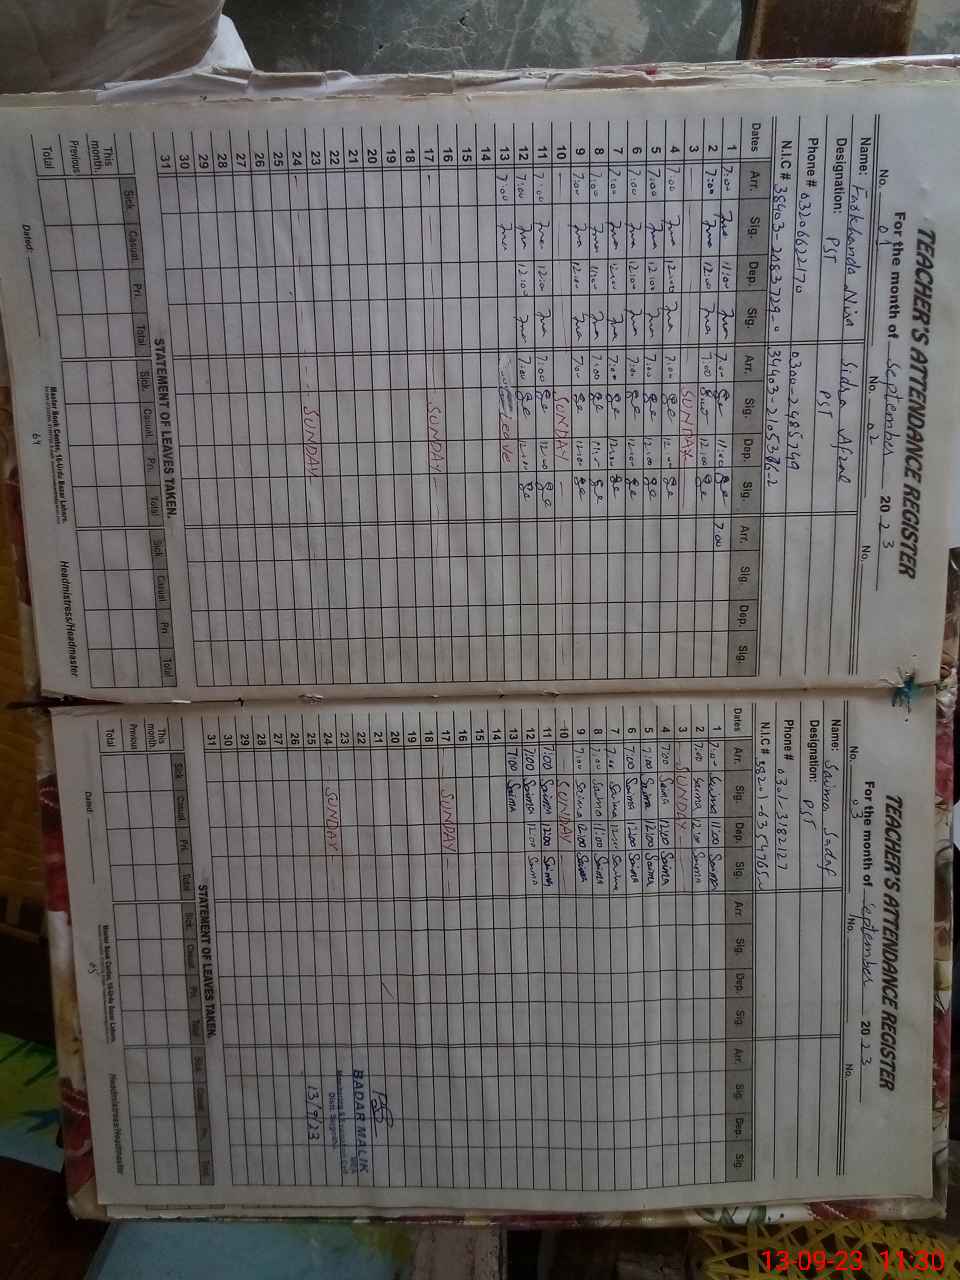 TEACHER'S ATTENDANCE REGISTER
For the month of September 2023
No. 01 No. 02 No.
Name: Farkhanda Nisa Sidra Afzal
Designation: PST PST
Phone # 03206622170 0300-2485749
N.I.C #
Dates Arr. Sig. Dep. Sig. Arr. Sig. Dep. Sig. Arr. Sig. Dep. Sig.
1 7:00 11:00 7:00 11:00 7:00
2 7:00 12:00 7:00 12:00
3 SUNDAY
4 7:00 12:00 7:00 12:00
5 7:00 12:00 7:00 12:00
6 7:00 12:00 7:00 12:00
7 7:00 12:00 7:00 12:00
8 7:00 11:00 7:00 11:00
9 7:00 12:00 7:00 12:00
10 SUNDAY
11 7:00 12:00 7:00 12:00
12 7:00 12:00 7:00 12:00
13 7:00 Leave
14
15
16
17 SUNDAY
18
19
20
21
22
23 SUNDAY
24
25
26
27
28
29
30
31
STATEMENT OF LEAVES TAKEN.
Sick. Casual. Pri. Total Sick. Casual. Pri. Total Sick. Casual. Pri. Total
This month.
Previous
Total
Master Book Centre, 16-Urdu Bazar Lahore.
Dated: Headmistress/Headmaster
64
TEACHER'S ATTENDANCE REGISTER
For the month of September 2023
No. 03 No. No.
Name: Saima Sadaf
Designation: PST
Phone # 0301-3182127
N.I.C #
Dates Arr. Sig. Dep. Sig. Arr. Sig. Dep. Sig. Arr. Sig. Dep. Sig.
1 7:00 Saima 11:00 Saima
2 7:00 Saima 12:00 Saima
3 SUNDAY
4 7:00 Saima 12:00 Saima
5 7:00 Saima 12:00 Saima
6 7:00 Saima 12:00 Saima
7 7:00 Saima 12:00 Saima
8 7:00 Saima 11:00 Saima
9 7:00 Saima 12:00 Saima
10 SUNDAY
11 7:00 Saima 12:00 Saima
12 7:00 Saima 12:00 Saima
13 7:00 Saima
14
15
16
17 SUNDAY
18
19
20
21
22
23
24 SUNDAY
25
26
27
28
29
30
31
BADAR MALIK
MEA
Monitoring & Evaluation Cell
Distt. Sargodha.
13/9/23
STATEMENT OF LEAVES TAKEN.
Sick. Casual. Pri. Total Sick. Casual. Pri. Total Sick. Casual. Pri. Total
This month.
Previous
Total
Master Book Centre, 16-Urdu Bazar Lahore.
Dated: Headmistress/Headmaster
65
13-09-23 11:30